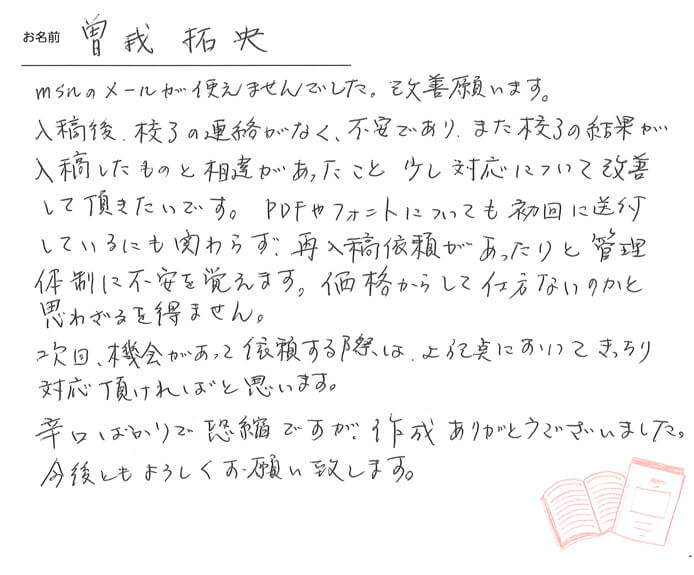 お名前 曽我 拓央
msnのメールが使えませんでした。改善願います。
入稿後、校了の連絡がなく、不安であり、また校了の結果が
入稿したものと相違があったこと 少し対応について改善
して頂きたいです。PDFやフォントについても初回に送付
しているにも関わらず、再入稿依頼があったりと管理
体制に不安を覚えます。価格からして仕方ないのかと
思わざるを得ません。
次回、機会があって依頼する際は、上記点においてきっちり
対応頂ければと思います。
辛口ばかりで恐縮ですが、作成ありがとうございました。
今後ともよろしくお願い致します。